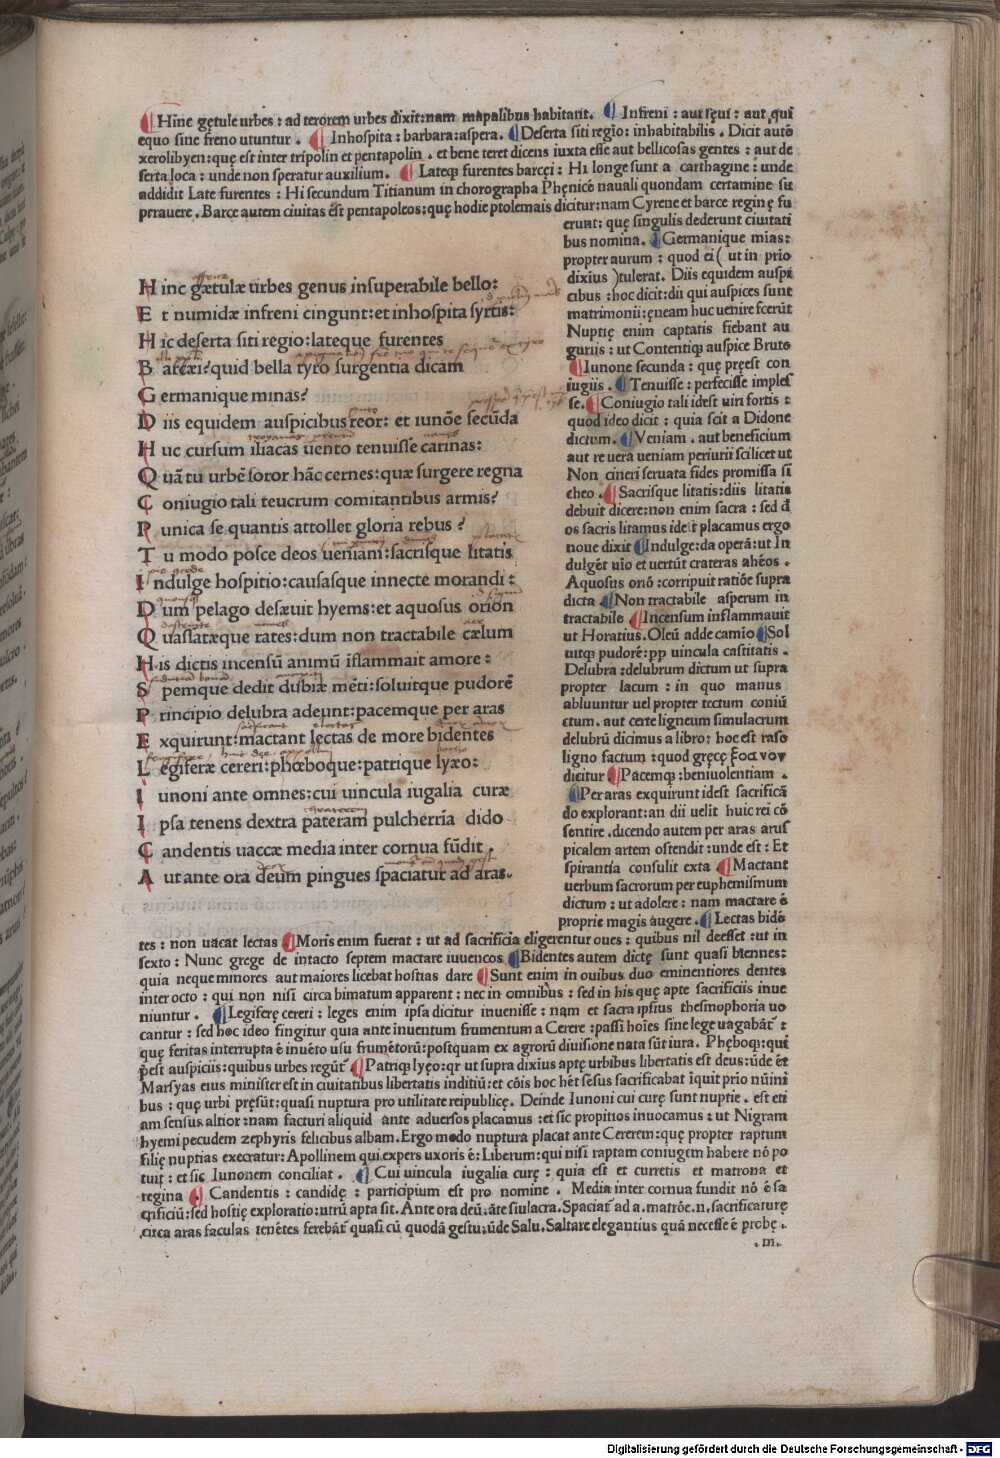 Hinc gętule urbes : ad terorem urbes dixit:nam mapalibus habitant. Infreni : aut sęui : aut qui
equo sine freno utuntur . Inhospita : barbara:aspera. Deserta siti regio: inhabitabilis . Dicit autē
xerolibyen:quę est inter tripolin et pentapolin . et bene teret dicens iuxta esse aut bellicosas gentes : aut de
serta loca : unde non speratur auxilium. Lateq; furentes barcęi : Hi longe sunt a carthagine : unde
addidit Late furentes : Hi secundum Titianum in chorographa Phęnicē nauali quondam certamine su
perauere . Barce autem ciuitas est pentapoleos:quę hodie ptolemais dicitur:nam Cyrene et barce reginę fu
erunt: quę singulis dederunt ciuitati
bus nomina. Germanique mias:
propter aurum : quod ei ( ut in prio
dixius )tulerat. Diis equidem auspi
cibus :hoc dicit:dii qui auspices sunt
matrimonii:ęneam huc uenire fcerūt
Nuptię enim captatis fiebant au
guriis : ut Contentiq; auspice Bruto
Iunone secunda : quę pręest con
iugiis . Tenuisse : perfecisse imples
se. Coniugio tali idest uiri fortis :
quod ideo dicit : quia scit a Didone
dictum. Veniam . aut beneficium
aut re uera ueniam periurii scilicet ut
Non cineri seruata fides promissa si
cheo . Sacrisque litatis:diis litatis
debuit dicere:non enim sacra : sed d
os sacris litamus idest placamus ergo
noue dixit Indulge:da operā: ut In
dulgēt uio et uertūt crateras ahēos .
Aquosus oriō :corripuit ratiōe supra
dicta Non tractabile asperum in
tractabile Incensum inflammauit
ut Horatius. Oleū adde camio Sol
uitq; pudorē: pp uincula castitatis .
Delubra : delubrum dictum ut supra
propter lacum : in quo manus
abluuntur uel propter tectum coniū
ctum. aut certe ligneum simulacrum
delubrū dicimus a libro: hoc est raso
ligno factum : quod gręcę ξοανον
dicitur Pacemq; :beniuolentiam .
Per aras exquirunt idest sacrificā
do explorant: an dii uelit huic rei cō
sentire . dicendo autem per aras arus
picalem artem ostendit : unde est : Et
spirantia consulit exta Mactant
uerbum sacrorum per euphemismum
dictum : ut adolere : nam mactare ē
proprie magis augere . Lectas bidē
Hinc gætulæ urbes genus insuperabile bello:
Et numidæ infreni cingunt:et inhospita syrtis:
Hic deserta siti regio:lateque furentes
Barcæi?quid bella tyro surgentia dicam
Germanique minas?
Diis equidem auspicibus reor: et iunōe secūda
Huc cursum iliacas uento tenuisse carinas:
Quā tu urbē soror hāc cernes:quæ surgere regna
Coniugio tali teucrum comitantibus armis?
Punica se quantis attollet gloria rebus ?
Tu modo posce deos ueniam:sacrisque litatis
Indulge hospitio:causasque innecte morandi :
Dum pelago desæuit hyems:et aquosus orion
Quassatæque rates:dum non tractabile cælum
His dictis incensū animū iflammait amore :
Spemque dedit dubiæ mēti:soluitque pudorē
Principio delubra adeunt:pacemque per aras
Exquirunt:mactant lectas de more bidentes
Legiferæ cereri:phœboque:patrique lyæo:
Iunoni ante omnes:cui uincula iugalia curæ
Ipsa tenens dextra pateram pulcherria dido
Candentis uaccæ media inter cornua fūdit .
Aut ante ora deum pingues spaciatur ad aras.
tes : non uacat lectas Moris enim fuerat : ut ad sacrificia eligerentur oues : quibus nil deesset :ut in
sexto : Nunc grege de intacto septem mactare iuuencos Bidentes autem dictę sunt quasi biennes:
quia neque minores aut maiores licebat hostias dare Sunt enim in ouibus duo eminentiores dentes
inter octo : qui non nisi circa bimatum apparent : nec in omnibus : sed in his quę apte sacrificiis inue
niuntur . Legiferę cereri : leges enim ipsa dicitur inuenisse : nam et sacra ipsius thesmophoria uo
cantur : sed hoc ideo fingitur quia ante inuentum frumentum a Cerere :passi hoies sine lege uagabāt :
quę feritas interrupta ē inuēto usu frumētorū:postquam ex agrorū diuisione nata sūt iura. Phęboq;:qui
pest auspiciis:quibus urbes regūt Patriq; lyęo:qr ut supra dixius aptę urbibus libertatis est deus:ūde ēt
Marsyas eius minister est in ciuitatibus libertatis inditiū: et cōis hoc hēt sēsus sacrificabat iquit prio nūini
bus : quę urbi pręsūt:quasi nuptura pro utilitate reipublicę. Deinde Iunoni cui curę sunt nuptie . est eti
am sensus altior:nam facturi aliquid ante aduersos placamus :et sic propitios inuocamus : ut Nigram
hyemi pecudem zephyris felicibus albam. Ergo modo nuptura placat ante Cererem:quę propter raptum
filię nuptias execratur: Apollinem qui expers uxoris ē: Liberum:qui nisi raptam coniugem habere nō po
tuit : et sic Iunonem conciliat . Cui uincula iugalia curę : quia est et curretis et matrona et
regina Candentis : candidę : participium est pro nomine . Media inter cornua fundit nō ē sa
crificiū:sed hostię exploratio:utrū apta sit. Ante ora deū.āte siulacra. Spaciat ad a. matrōe.n.sacrificaturę
circa aras faculas tenētes ferebāt quasi cū quodā gestu.ūde Salu. Saltare elegantius quā necesse ē probę .
.m.
Digitalisierung gefördert durch die Deutsche Forschungsgemeinschaft - DFG